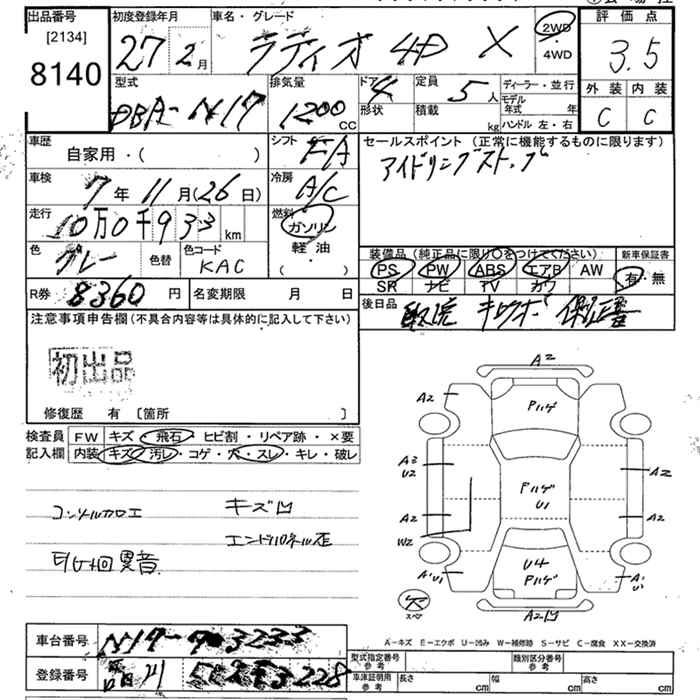 出品番号
[2134]
8140
初度登録年月
27年 2月
車名・グレード
ラティオ 4D X
2WD
4WD
評価点
3.5
外装 内装
C C
型式
DBA-N17
排気量
1200
CC
ドア 4
形状
定員 5人
積載 kg
ディーラー・並行
モデル年式 年
ハンドル 左・右
車歴
自家用・( )
シフト
FA
セールスポイント (正常に機能するものに限ります)
アイドリングストップ
車検
7年 11月(26日)
冷房
A/C
走行
10万0千933 km
燃料
ガソリン
軽・油
( )
色
グレー
色替
色コード
KAC
装備品 (純正品に限り○をつけてください)
PS PW ABS エアB AW
SR ナビ TV カワ
新車保証書
有・無
R券 8360円
名変期限 月 日
後日品
取説 保証書
注意事項申告欄 (不具合内容等は具体的に記入して下さい)
初出品
修復歴 有 〔箇所 〕
検査員 FW キズ・飛石・ヒビ割・リペア跡・×要
記入欄 内装 キズ・汚レ・コゲ・穴・スレ・キレ・破レ
コンソール加工
キズ凹
エンドパネル歪
異音
A2
A2
A2
Pハゲ
A3
U2
A2
Pハゲ
U1
A2
A2
W2
U4
Pハゲ
A1U1
A1
U1
スペア
A2凹
A-キズ E-エクボ U-凹み W-補修跡 S-サビ C-腐食 XX-交換済
車台番号
登録番号
型式指定番号
参考
類別区分番号
参考
車庫証明用
参考
長さ cm
幅 cm
高さ cm